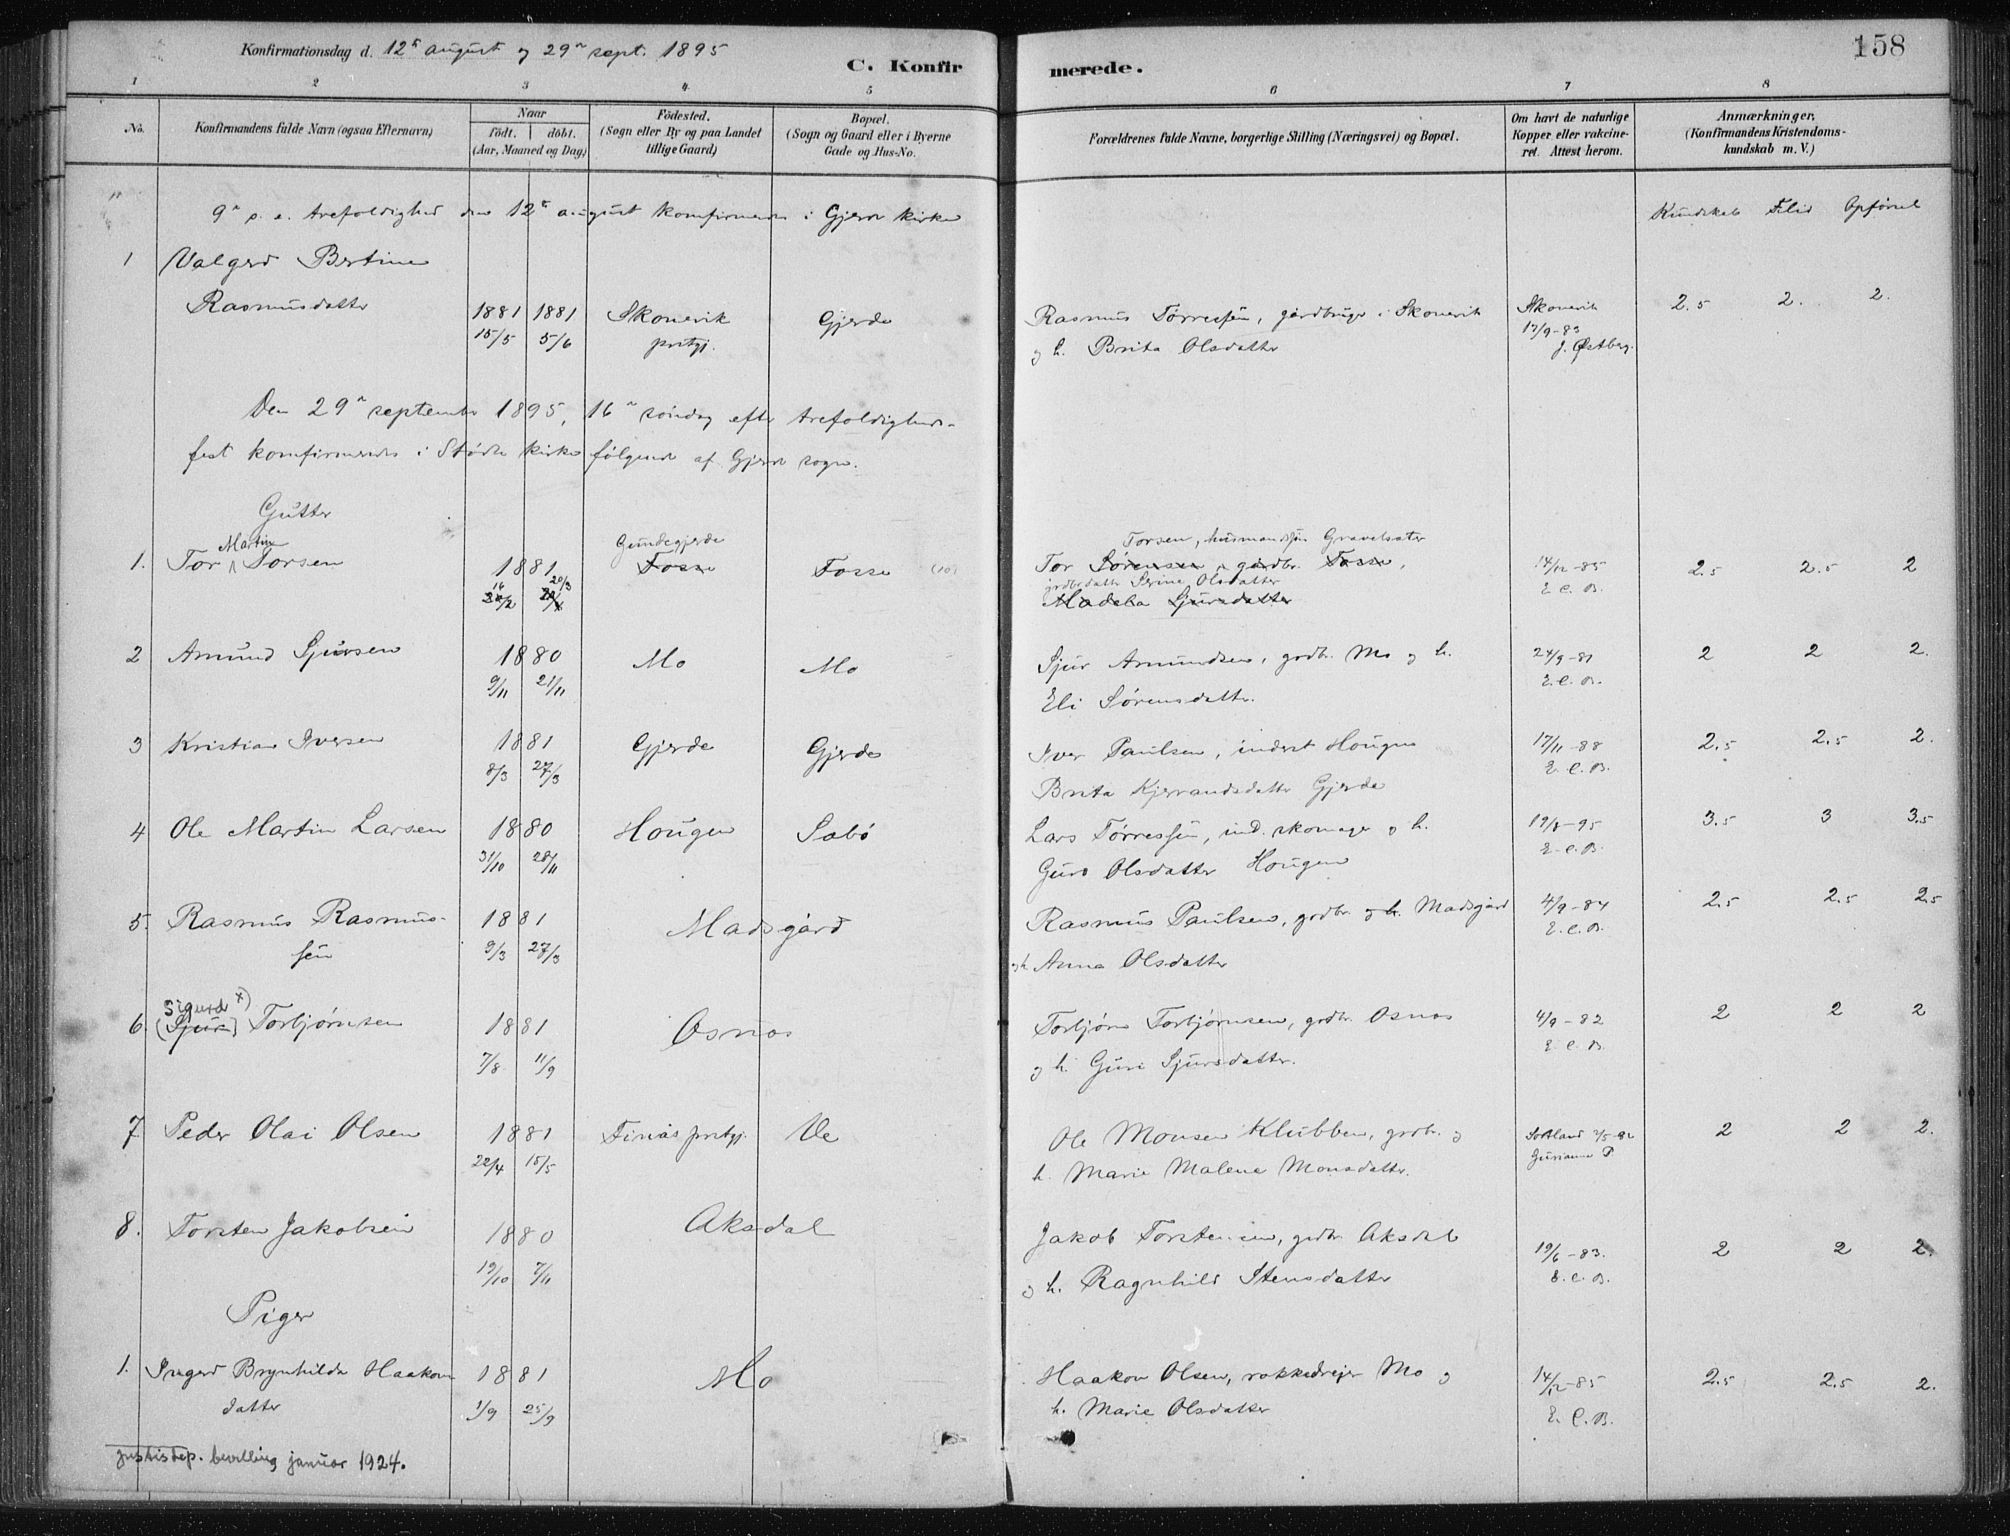 Konfirmationsdag d. 12te august og 29de sept. 1895
C. Konfirmerede.
158
1 2 3 4 5 6 7 8
No.
Konfirmandens fulde Navn (ogsaa Efternavn)
Naar
födt. döbt.
(Aar, Maaned og Dag)
Födested.
(Sogn eller By og paa Landet
tillige Gaard)
Bopæl.
(Sogn og Gaard eller i Byerne
Gade og Hus-No.
Forældrenes fulde Navne, borgerlige Stilling (Næringsvei) og Bopæl.
Om havt de naturlige
Kopper eller vakcine-
ret. Attest herom.
Anmærkninger.
(Konfirmandens Kristendoms-
kundskab m. V.)
9de s. e. trefoldighed den 12te august konfirmeredes i Gjerde kirke
Kundskab Flid Opførsel
1 Valgerd Bertine
Rasmusdatter 1881 1881 Skonevik Gjerde Rasmus Tørressen, gårdbruger i Skonevik Skonevik 2.5 2. 2.
15/5 5/6 prstgj. og h. Brita Olsdatter 17/9-83
J. Østberg.
Den 29de september 1895, 16de søndag efter trefoldigheds-
fest konfirmeredes i Stødle kirke følgende af Gjerde sogn.
Gutter
Martin Gundegjerde Torsen, husmandssøn Gravelsæter
1. Tor Torsen 1881 Fosse Fosse Tor Sørensen, gårdbr. Fosse, 14/12-85 2.5 2.5 2
16 20/3 grdbrdatter Serine Olsdatter E. C. B.
Madela Sjursdatter
2 Amund Sjursen 1880 Mo Mo Sjur Amundsen, grdbr. Mo og h. 24/9-81 2 2 2.
9/11 21/11 Eli Sørensdatter. E. C. B.
3 Kristian Iversen 1881 Gjerde Gjerde Iver Paulsen, inderst Hougen 17/11-88 2.5 2.5 2.
8/3 27/3 Brita Kjerrandsdatter Gjerde E. C. B.
4 Ole Martin Larsen 1880 Hougen Sabø Lars Tørressen, ind. skomager og h. 19/8-95 3.5 3 3.5
31/10 28/11 Guro Olsdatter Hougen E. C. B.
5. Rasmus Rasmus- 1881 Madsgård Rasmus Paulsen, grdbr. og h. Madsgård 4/9-84 2.5 2.5 2.5
sen 9/3 27/3 og h. Anna Olsdatter E. C. B.
Sigurd x)
6. (Sjur) Torbjørnsen 1881 Osnes Torbjørn Torbjørnsen, grdbr. Osnes 4/9-82 2 2 2
7/8 11/9 og h. Guri Sjursdatter. E. C. B.
7 Peder Olai Olsen 1881 Finås prstgj. Ve Ole Monsen Klubben, grdbr. og 2 2 2.
22/4 15/5 h. Marie Malene Monsdatter.
8. Torsten Jakobsen 1880 Aksdal Jakob Torstensen, grdbr. Aksdal 19/6-83. 2 2 2.
19/10 7/11 og h. Ragnhild Stensdatter E. C. B.
Piger
1. Ingerd Brynhilda Haakons 1881 Mo Haakon Olsen, rokkedreier Mo og 14/12-85 2.5 2.5 2.
datter 1/9 25/9 h. Marie Olsdatter E. C. B.
justisdep. bevilling januar 1924.